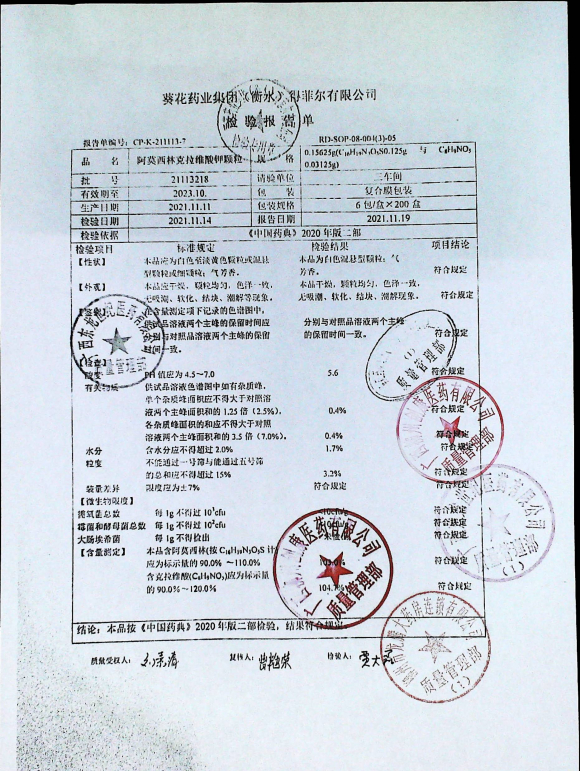 葵花药业集团（衡水）得菲尔有限公司
检验报告单
报告单编号：CP-K-211113-7 RD-SOP-08-004(3)-05
品 名 阿莫西林克拉维酸钾颗粒 规 格 0.15625g(C₁₆H₁₉N₃O₅S0.125g 与 C₈H₉NO₅ 0.03125g)
批 号 21113218 请验单位 三车间
有效期至 2023.10. 包 装 复合膜包装
生产日期 2021.11.11 包装规格 6 包/盒×200 盒
检验日期 2021.11.14 报告日期 2021.11.19
检验依据 《中国药典》2020 年版二部
检验项目 标准规定 检验结果 项目结论
【性状】 本品应为白色至淡黄色颗粒或混悬 本品为白色混悬型颗粒；气
型颗粒或细颗粒；气芳香。 芳香。 符合规定
【外观】 本品应干燥，颗粒均匀，色泽一致， 本品干燥，颗粒均匀，色泽一致，
无吸潮、软化、结块、潮解等现象。 无吸潮、软化、结块、潮解现象。 符合规定
在含量测定项下记录的色谱图中，
供试品溶液两个主峰的保留时间应 分别与对照品溶液两个主峰
与对照品溶液两个主峰的保留 的保留时间一致。 符合规定
时间一致。
【检查】
酸度 PH 值应为 4.5~7.0 5.6 符合规定
有关物质 供试品溶液色谱图中如有杂质峰，
单个杂质峰面积应不得大于对照溶
液两个主峰面积和的 1.25 倍（2.5%）， 0.4% 符合规定
各杂质峰面积的和应不得大于对照
溶液两个主峰面积和的 3.5 倍（7.0%）。 0.4% 符合规定
水分 含水分应不得超过 2.0% 1.7% 符合规定
粒度 不能通过一号筛与能通过五号筛
的总和应不得超过 15% 3.2% 符合规定
装量差异 限度应为±7% 符合规定 符合规定
【微生物限度】
需氧菌总数 每 1g 不得过 10³cfu <10cfu/g 符合规定
霉菌和酵母菌总数 每 1g 不得过 10²cfu <10cfu/g 符合规定
大肠埃希菌 每 1g 不得检出 符合规定
【含量测定】 本品含阿莫西林(按 C₁₆H₁₉N₃O₅S 计)
应为标示量的 90.0% ~110.0% 符合规定
含克拉维酸(C₈H₉NO₅)应为标示量
的 90.0%~120.0% 符合规定
结论：本品按《中国药典》2020 年版二部检验，结果符合规定
质量受权人： 复核人： 检验人：
质量管理部
质量管理部
(1)
质量管理部
质量管理部
质量管理部